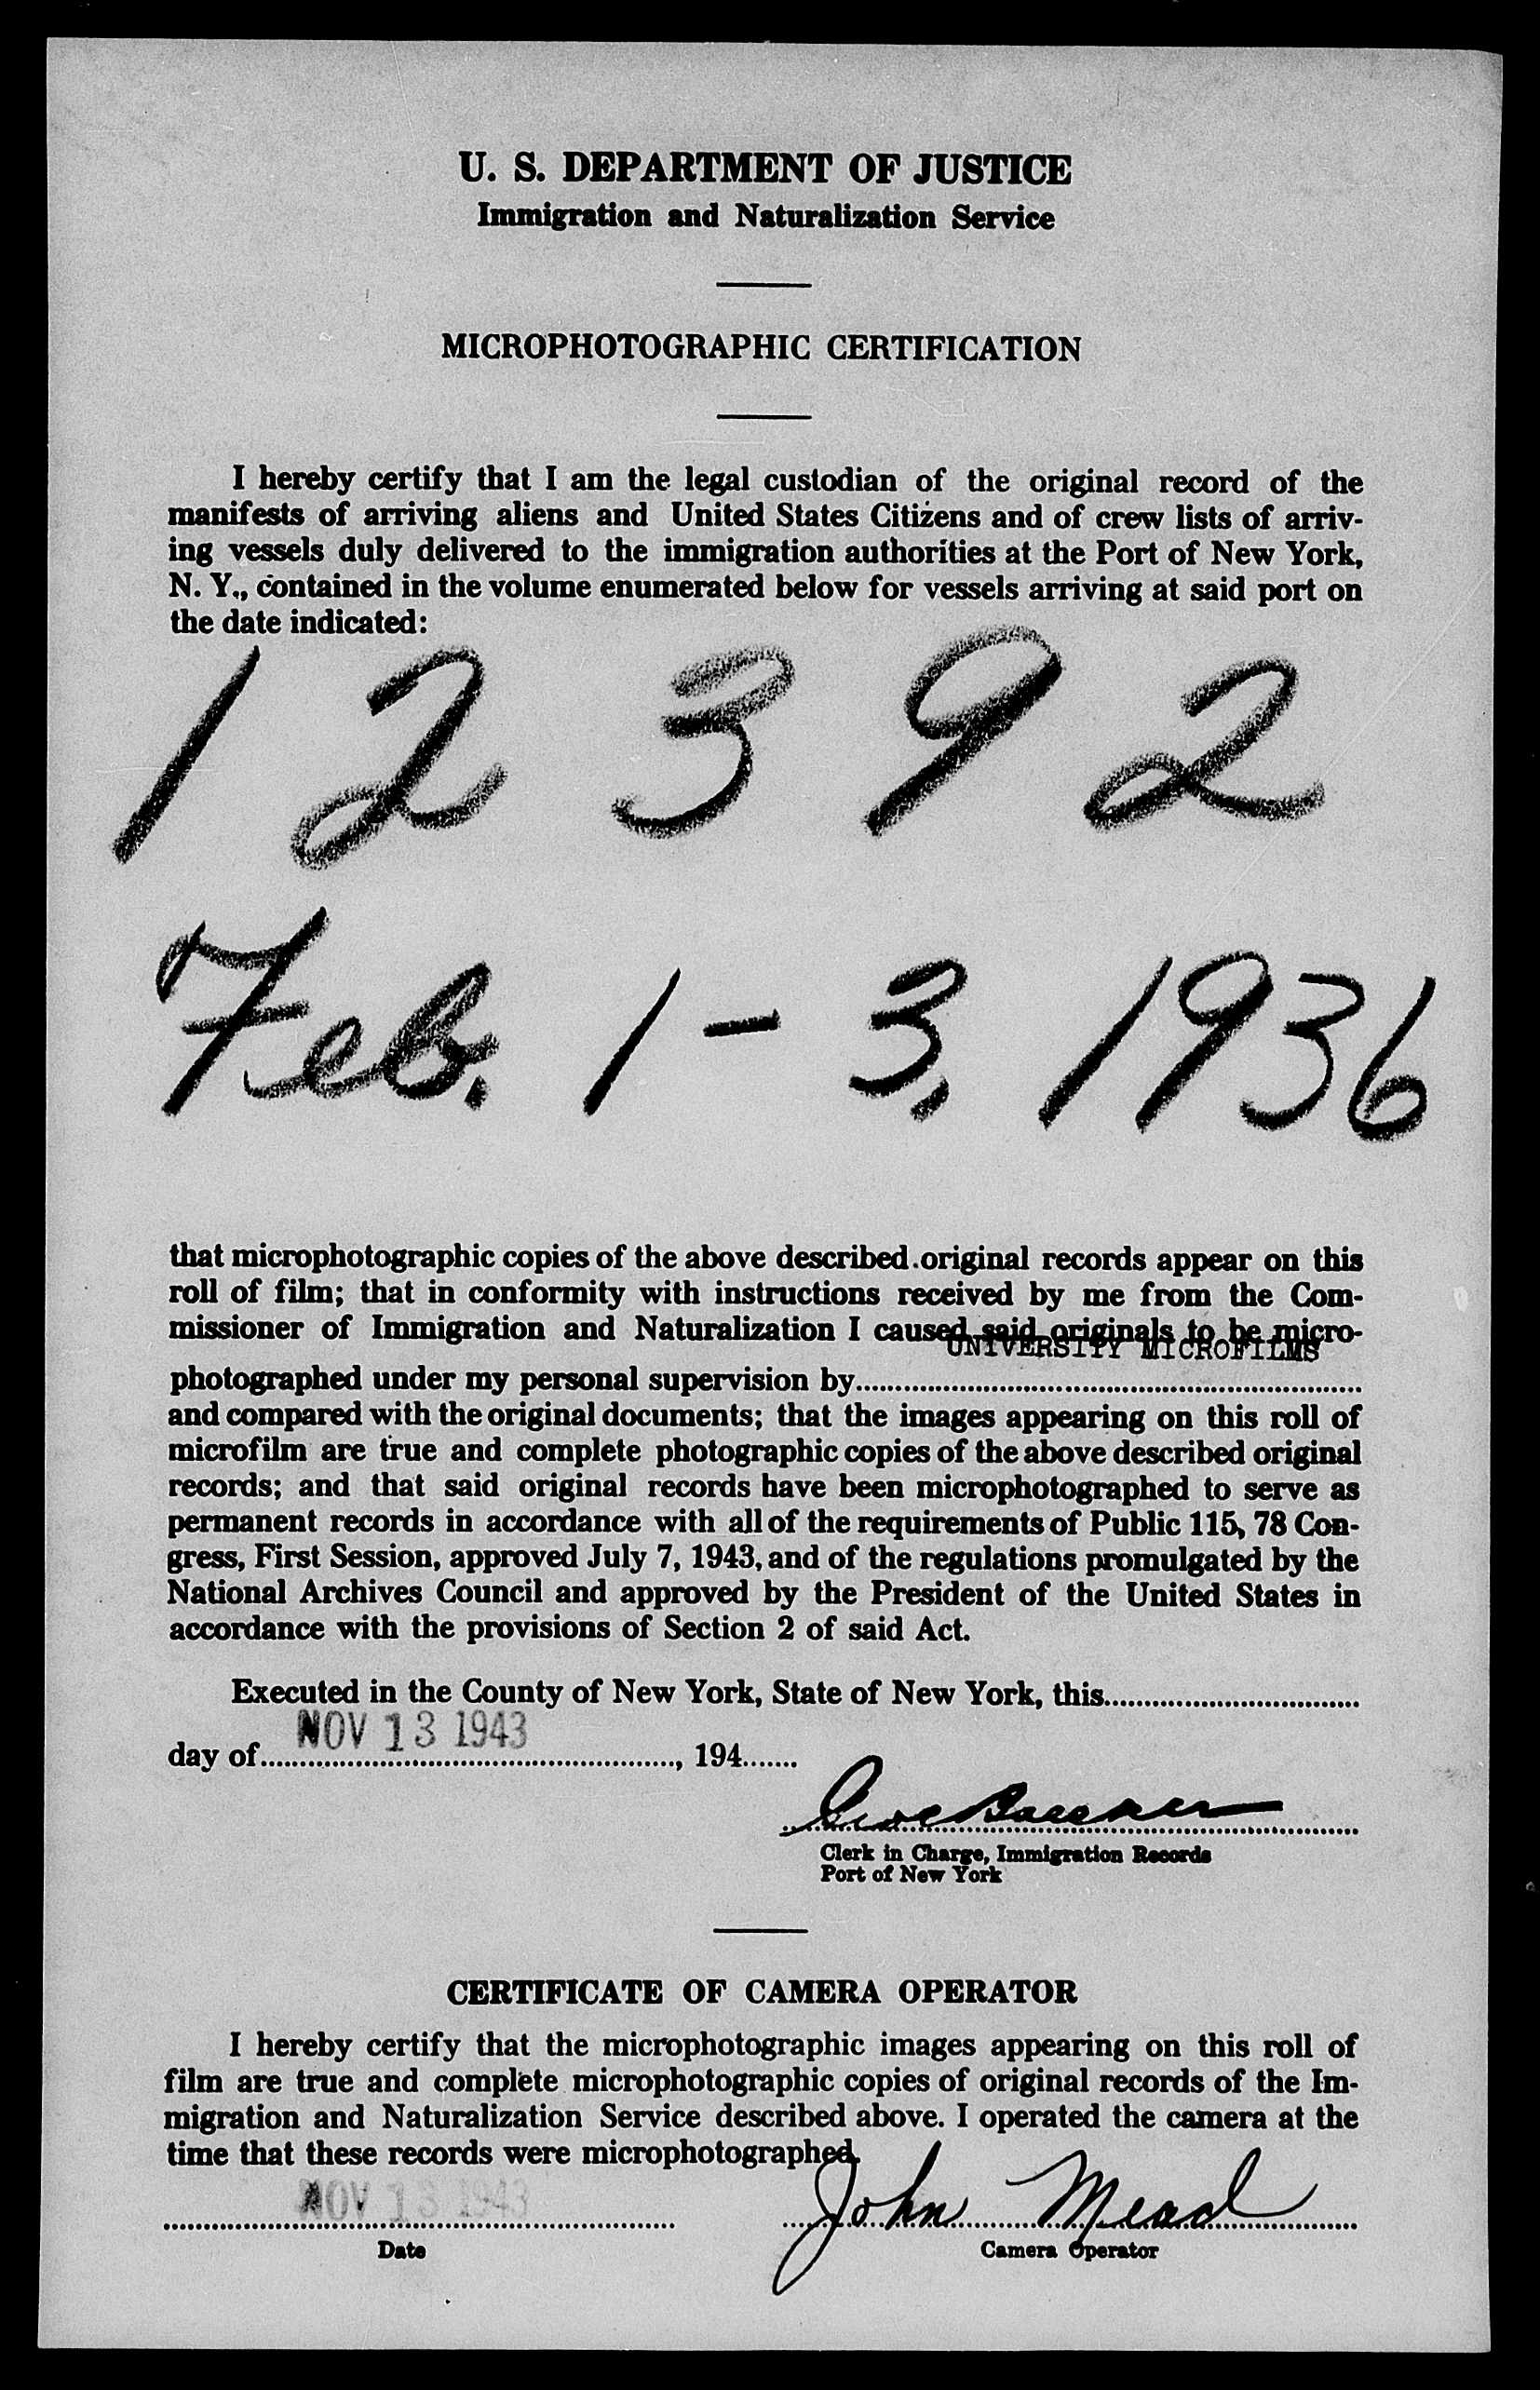 U. S. DEPARTMENT OF JUSTICE
Immigration and Naturalization Service
MICROPHOTOGRAPHIC CERTIFICATION
I hereby certify that I am the legal custodian of the original record of the
manifests of arriving aliens and United States Citizens and of crew lists of arriv-
ing vessels duly delivered to the immigration authorities at the Port of New York,
N. Y., contained in the volume enumerated below for vessels arriving at said port on
the date indicated:
12392
Feb. 1-3, 1936
that microphotographic copies of the above described original records appear on this
roll of film; that in conformity with instructions received by me from the Com-
missioner of Immigration and Naturalization I caused said originals to be micro-
UNIVERSITY MICROFILMS
photographed under my personal supervision by
and compared with the original documents; that the images appearing on this roll of
microfilm are true and complete photographic copies of the above described original
records; and that said original records have been microphotographed to serve as
permanent records in accordance with all of the requirements of Public 115, 78 Con-
gress, First Session, approved July 7, 1943, and of the regulations promulgated by the
National Archives Council and approved by the President of the United States in
accordance with the provisions of Section 2 of said Act.
Executed in the County of New York, State of New York, this
NOV 13 1943
day of, 194
Clerk in Charge, Immigration Records
Port of New York
CERTIFICATE OF CAMERA OPERATOR
I hereby certify that the microphotographic images appearing on this roll of
film are true and complete microphotographic copies of original records of the Im-
migration and Naturalization Service described above. I operated the camera at the
time that these records were microphotographed.
NOV 13 1943 John Mead
Date Camera Operator